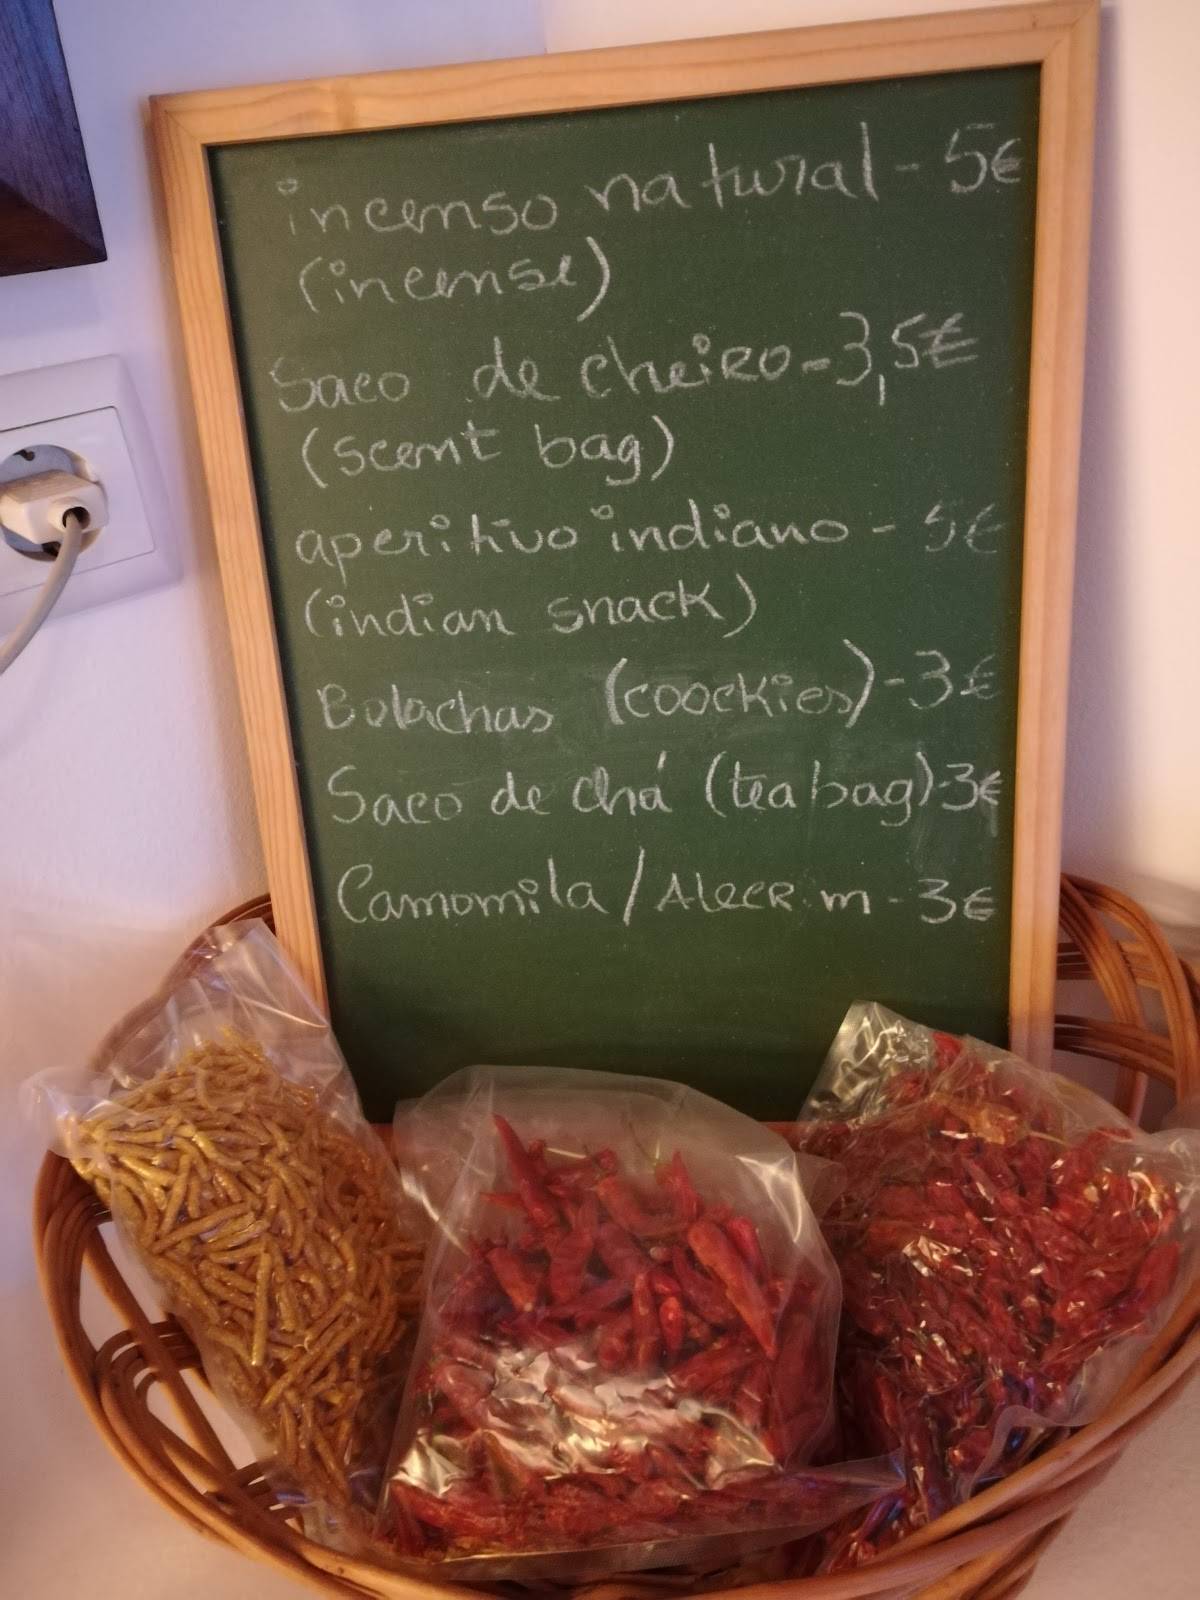 incenso natural - 5€
(incense)
Saco de cheiro - 3,5€
(scent bag)
aperitivo indiano - 5€
(indian snack)
Bolachas (coockies) - 3€
Saco de chá (tea bag) - 3€
Camomila / Alecrim - 3€